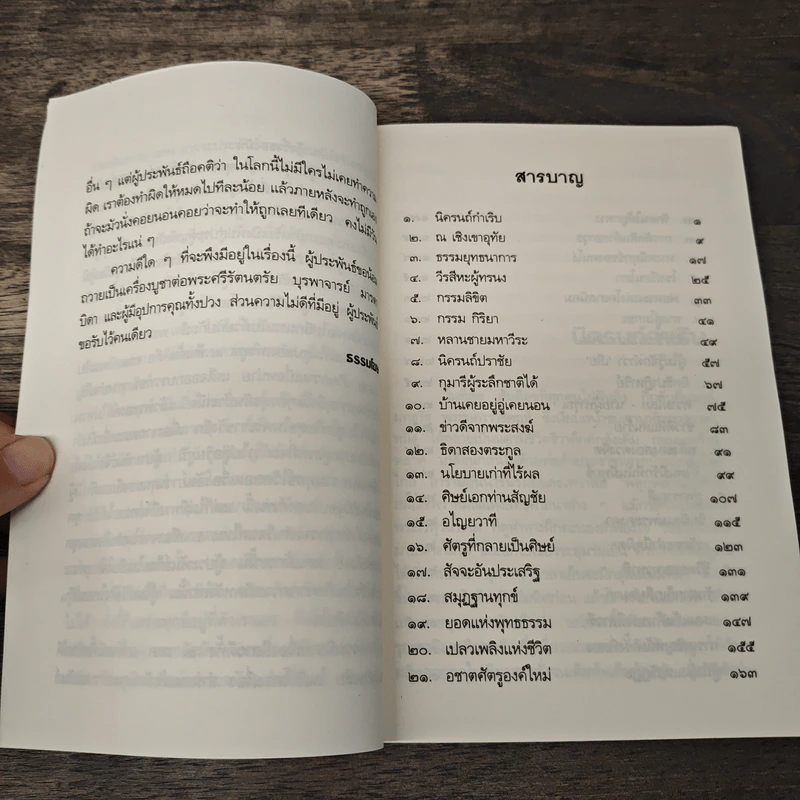 อื่น ๆ แต่ผู้ประพันธ์ถือคติว่า ในโลกนี้ไม่มีใครไม่เคยทำความ
ผิด เราต้องทำผิดให้หมดไปทีละน้อย แล้วภายหลังจะทำถูกเอง
ถ้าจะมัวนั่งคอยนอนคอยว่าจะทำให้ถูกเลยทีเดียว คงไม่มีวัน
ได้ทำอะไรแน่ ๆ
ความดีใด ๆ ที่จะพึงมีอยู่ในเรื่องนี้ ผู้ประพันธ์ขอน้อม
ถวายเป็นเครื่องบูชาต่อพระศรีรัตนตรัย บุรพาจารย์ มารดา
บิดา และผู้มีอุปการคุณทั้งปวง ส่วนความไม่ดีที่มีอยู่ ผู้ประพันธ์
ขอรับไว้คนเดียว
สารบาญ
๑. นิครนถ์กำเริบ ๑
๒. ณ เชิงเขาอุทัย ๙
๓. ธรรมยุทธนาการ ๑๗
๔. วีรสีหะผู้ทรนง ๒๕
๕. กรรมลิขิต ๓๓
๖. กรรม กิริยา ๔๑
๗. หลานชายมหาวีระ ๔๙
๘. นิครนถ์ปราชัย ๕๗
๙. กุมารีผู้ระลึกชาติได้ ๖๗
๑๐. บ้านเคยอยู่อู่เคยนอน ๗๕
๑๑. ข่าวดีจากพระสงฆ์ ๘๓
๑๒. ธิดาสองตระกูล ๙๑
๑๓. นโยบายเก่าที่ไร้ผล ๙๙
๑๔. ศิษย์เอกท่านสัญชัย ๑๐๗
๑๕. อไญยวาที ๑๑๕
๑๖. ศัตรูที่กลายเป็นศิษย์ ๑๒๓
๑๗. สัจจะอันประเสริฐ ๑๓๑
๑๘. สมุฏฐานทุกข์ ๑๓๙
๑๙. ยอดแห่งพุทธธรรม ๑๔๗
๒๐. เปลวเพลิงแห่งชีวิต ๑๕๕
๒๑. อชาตศัตรูองค์ใหม่ ๑๖๓